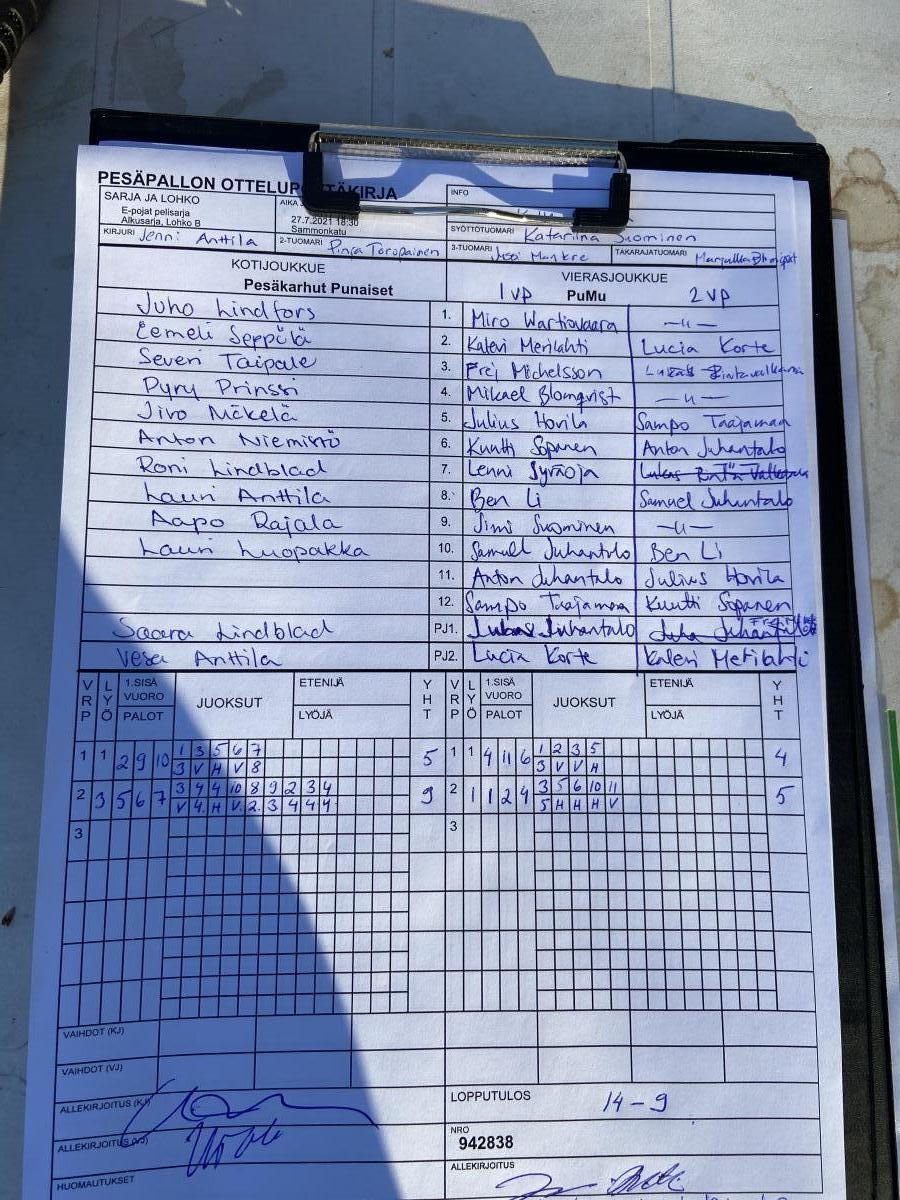 PESÄPALLON OTTELUPÖYTÄKIRJA
INFO
SARJA JA LOHKO
E-pojat pelisarja
Alkusarja, Lohko B
AIKA
27.7.2021 18:30
Sammonkatu
SYÖTTÖTUOMARI Katariina Suominen
KIRJURI Jenni Anttila
2-TUOMARI Pinja Toropainen
3-TUOMARI
TAKARAJATUOMARI Marjukka Blomqvist
KOTIJOUKKUE
Pesäkarhut Punaiset
VIERASJOUKKUE
1 VP PuMu 2 VP
Juho Lindfors 1. Miro Wartiovaara —"—
Eemeli Seppälä 2. Kalevi Merilahti Lucia Korte
Severi Taipale 3. Frej Michelsson Lukas
Pyry Prinssi 4. Mikael Blomqvist —"—
Jivo Mäkelä 5. Julius Horila Sampo Taajamaa
Anton Niemistö 6. Kuutti Sopanen Anton Juhantalo
Roni Lindblad 7. Lenni Syräoja Lukas
Lauri Anttila 8. Ben Li Samuel Juhantalo
Aapo Rajala 9. Jimi Suominen —"—
Lauri Luopakka 10. Samuel Juhantalo Ben Li
11. Anton Juhantalo Julius Horila
12. Sampo Taajamaa Kuutti Sopanen
Saara Lindblad PJ1. Lukas Juhantalo Juha Juhantalo
Vesa Anttila PJ2. Lucia Korte Kalevi Merilahti
VRP LYÖ 1.SISÄ VUORO PALOT JUOKSUT ETENIJÄ LYÖJÄ YHT VRP LYÖ 1.SISÄ VUORO PALOT JUOKSUT ETENIJÄ LYÖJÄ YHT
1 1 2 9 10 1 3 5 6 7 5 1 1 4 11 6 1 2 3 5 4
3 V H V 8 3 V V H
2 3 5 6 7 3 4 4 10 8 9 2 3 4 9 2 1 1 2 4 3 5 6 10 11 5
V 4. H V. 2. 3 4 4 4 5 H H H V
3 3
VAIHDOT (KJ)
VAIHDOT (VJ)
ALLEKIRJOITUS (KJ)
LOPPUTULOS 14-9
ALLEKIRJOITUS (VJ)
NRO
942838
HUOMAUTUKSET
ALLEKIRJOITUS